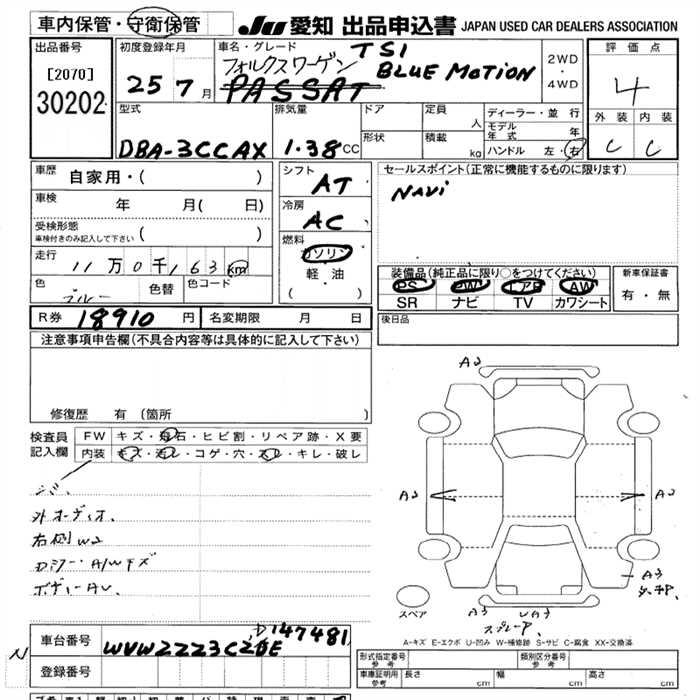 車内保管・守衛保管
JU 愛知 出品申込書 JAPAN USED CAR DEALERS ASSOCIATION
出品番号
[2070]
30202
初度登録年月
25 7月
車名・グレード
フォルクスワーゲン TSI
PASSAT BLUE MOTION
2WD
・
4WD
評価点
4
外装 内装
C C
型式
DBA-3CCAX
排気量
1.38CC
ドア
定員
人
形状
積載
kg
ディーラー・並行
モデル年式 年
ハンドル 左・右
車歴
自家用・( )
車検
年 月( 日)
受検形態
車検付きのみ記入して下さい ( )
走行
11万0千163km
色
ブルー
色替
色コード
シフト
AT
冷房
AC
燃料
ガソリン
軽・油
( )
セールスポイント(正常に機能するものに限ります)
NAVi
装備品(純正品に限り○をつけてください)
PS PW エアB AW
SR ナビ TV カワシート
新車保証書
有・無
後日品
R券 18910円
名変期限 月 日
注意事項申告欄(不具合内容等は具体的に記入して下さい)
修復歴 有 (箇所 )
検査員
記入欄
FW キズ・飛石・ヒビ割・リペア跡・X要
内装 キズ・汚レ・コゲ・穴・スレ・キレ・破レ
シミ、
外オーディオ、
右側W2
ロアー、A/Wキズ
ボディーAU、
A2
A2
A2
A3
A3
UA3
スペア
A-キズ E-エクボ U-凹み W-補修跡 S-サビ C-腐食 XX-交換済
車台番号
WVWZZZ3CZDE
147481
登録番号
N
形式指定番号
参考
類別区分番号
参考
車庫証明用
参考
長さ cm
幅 cm
高さ cm